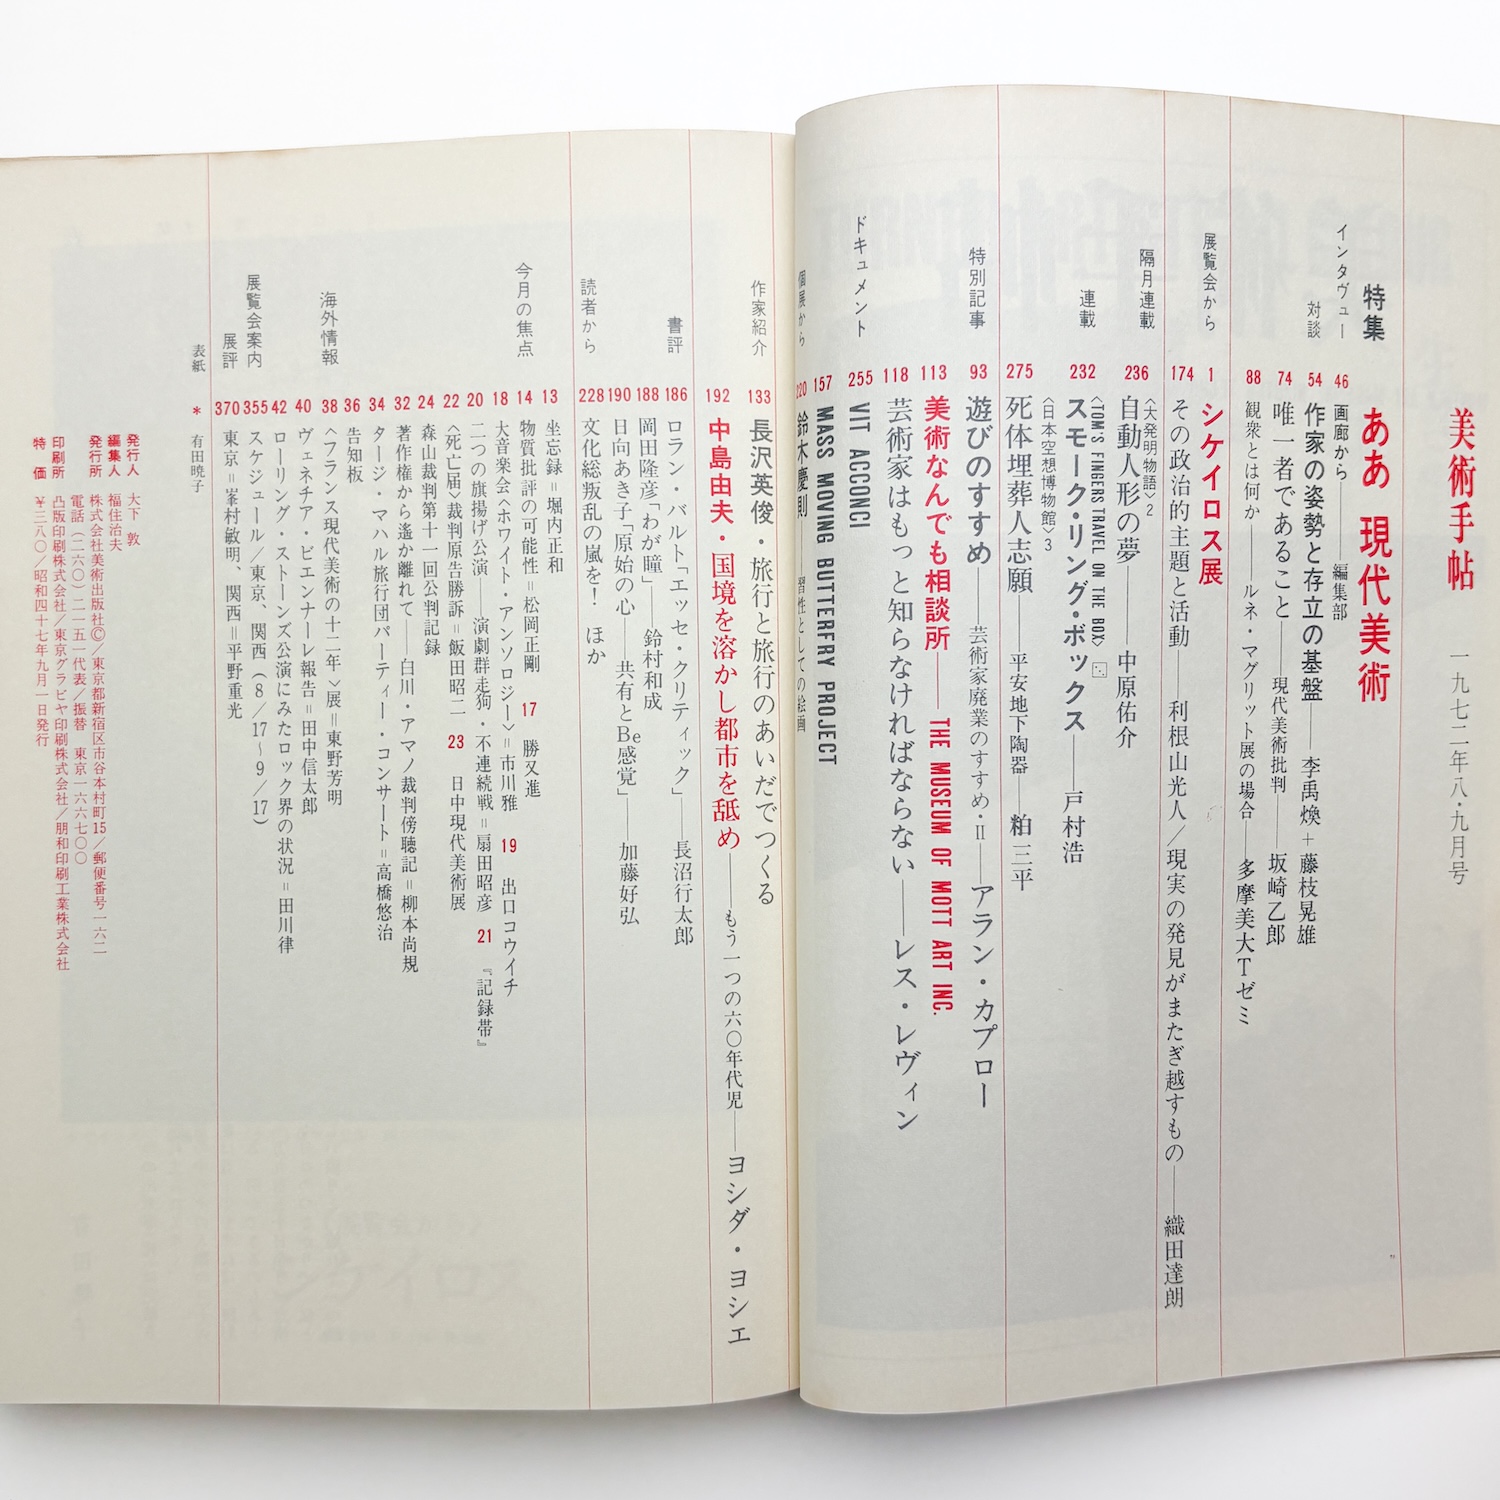 美術手帖 一九七二年八・九月号
特集 ああ 現代美術
インタヴュー 46 画廊から——編集部
対談 54 作家の姿勢と存立の基盤——李禹煥+藤枝晃雄
74 唯一者であること——現代美術批判——坂崎乙郎
88 観衆とは何か——ルネ・マグリット展の場合——多摩美大Tゼミ
展覧会から 1 シケイロス展
174 その政治的主題と活動——利根山光人/現実の発見がまたぎ越すもの——織田達朗
隔月連載 〈大発明物語〉2
236 自動人形の夢——中原佑介
連載 〈TOM'S FINGERS TRAVEL ON THE BOX〉
232 スモーク・リング・ボックス——戸村浩
〈日本空想博物館〉3
275 死体埋葬人志願——平安地下陶器——粕三平
特別記事 93 遊びのすすめ——芸術家廃業のすすめ・II——アラン・カプロー
113 美術なんでも相談所——THE MUSEUM OF MOTT ART INC.
118 芸術家はもっと知らなければならない——レス・レヴィン
ドキュメント 255 VIT ACCONCI
157 MASS MOVING BUTTERFRY PROJECT
個展から 220 鈴木慶則——習性としての絵画
作家紹介 133 長沢英俊・旅行と旅行のあいだでつくる
192 中島由夫・国境を溶かし都市を舐め——もう一つの六〇年代児——ヨシダ・ヨシエ
書評 186 ロラン・バルト「エッセ・クリティック」——長沼行太郎
188 岡田隆彦「わが瞳」——鈴村和成
190 日向あき子「原始の心——共有とBe感覚」——加藤好弘
読者から 228 文化総叛乱の嵐を! ほか
今月の焦点 13 坐忘録=堀内正和
14 物質批評の可能性=松岡正剛 17 勝又進
18 大音楽会〈ホワイト・アンソロジー〉=市川雅 19 出口コウイチ
20 二つの旗揚げ公演——演劇群走狗・不連続戦=扇田昭彦 21 『記録帯』
22 〈死亡届〉裁判原告勝訴=飯田昭二 23 日中現代美術展
24 森山裁判第十一回公判記録
32 著作権から遙か離れて——白川・アマノ裁判傍聴記=柳本尚規
34 タージ・マハル旅行団パーティー・コンサート=高橋悠治
36 告知板
海外情報 38 〈フランス現代美術の十二年〉展=東野芳明
40 ヴェネチア・ビエンナーレ報告=田中信太郎
42 ローリング・ストーンズ公演にみたロック界の状況=田川律
展覧会案内 355 スケジュール/東京、関西(8/17〜9/17)
展評 370 東京=峯村敏明、関西=平野重光
表紙 * 有田暁子
発行人 大下 敦
編集人 福住治夫
発行所 株式会社美術出版社©/東京都新宿区市谷本村町15/郵便番号一六二
電話(二六〇)二一五一代表/振替 東京一六六七〇〇
印刷所 凸版印刷株式会社/東京グラビヤ印刷株式会社/朋和印刷工業株式会社
特 価 ¥三八〇/昭和四十七年九月一日発行